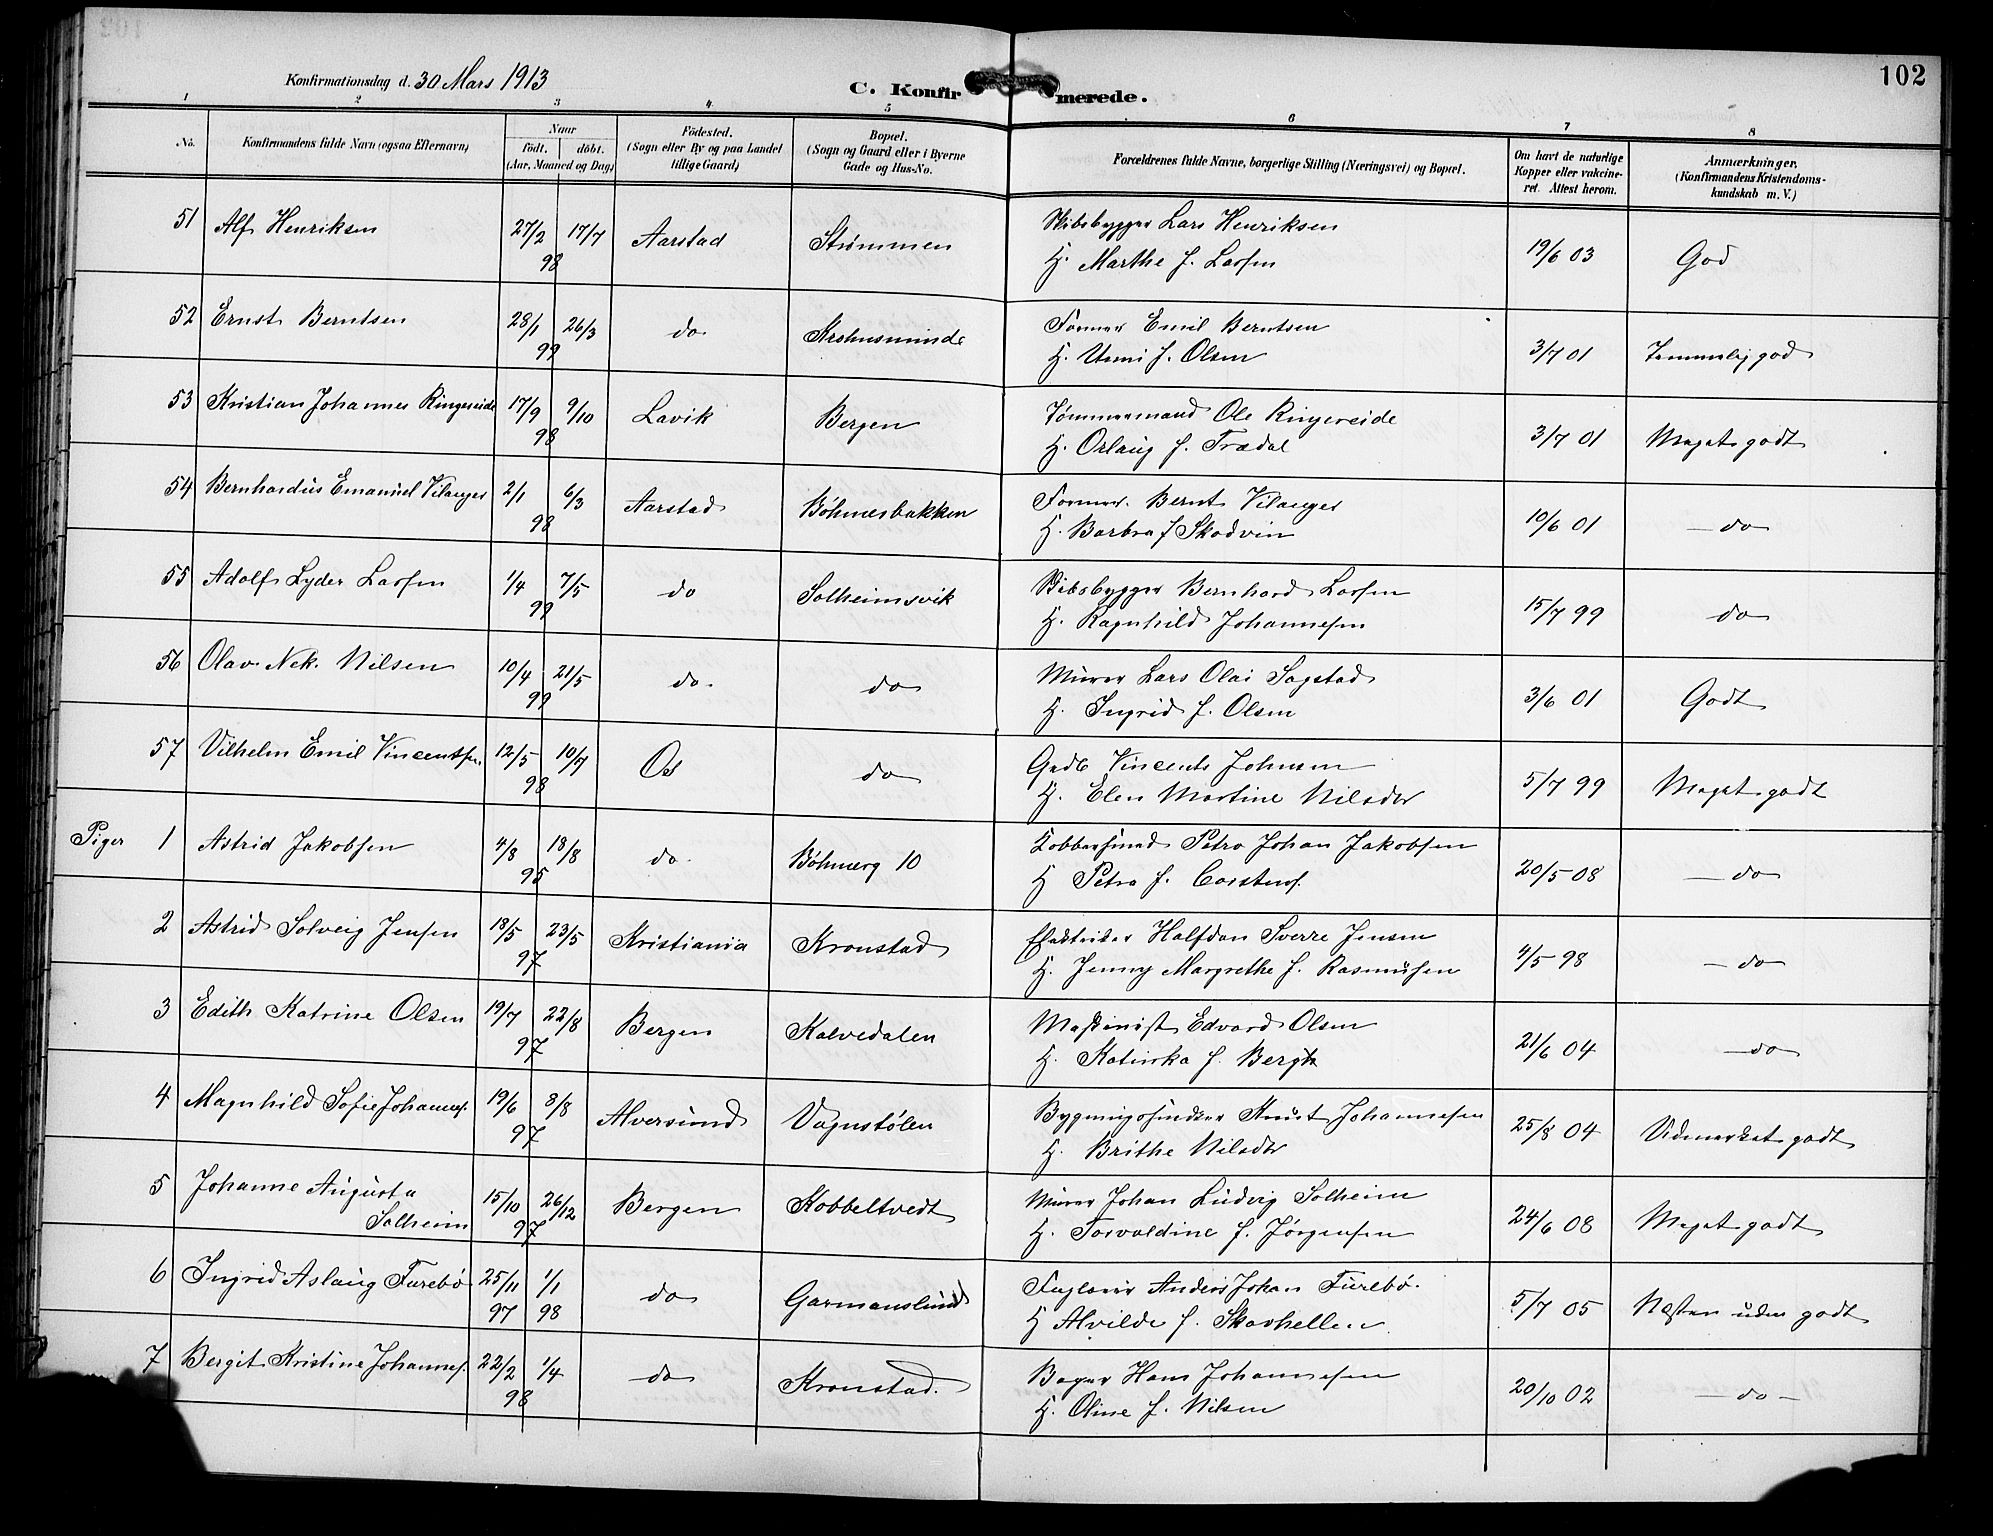 102
Konfirmationsdag d. 30 Mars 1913
C. Konfirmerede.
1 2 3 4 5 6 7 8
No. Konfirmandens fulde Navn (ogsaa Efternavn) Naar födt. döbt. (Aar, Maaned og Dag) Födested. (Sogn eller By og paa Landet tillige Gaard) Bopæl. (Sogn og Gaard eller i Byerne Gade og Hus-No. Forældrenes fulde Navne, borgerlige Stilling (Næringsvei) og Bopæl. Om havt de naturlige Kopper eller vakcineret. Attest herom. Anmærkninger, (Konfirmandens Kristendomskundskab m. V.)
51 Alf Henriksen 27/2 98 17/7 Aarstad Strømmen Skibsbygger Lars Henriksen 19/6 03 God
H. Marthe f. Larsen
52 Ernst Berntsen 28/1 99 26/3 do Former Emil Berntsen 3/7 01 Temmelig god
H. f. Olsen
53 Kristian Johannes Ringereide 17/9 98 9/10 Lavik Bergen Tømmermand Ole Ringereide 3/7 01 Meget godt
H. Orlaug f. Trædal
54 Bernhardus Emanuel Vilanger 2/1 98 6/3 Aarstad Böhmerbakken Former. Bernt Vilanger 10/6 01 - do
H. Barbra f Skodvin
55 Adolf Lyder Larsen 1/4 99 7/5 do Solheimsvik Skibsbygger Bernhard Larsen 15/7 99 do
H. Ragnhild Johannesen
56 Olav Nek. Nilsen 10/4 99 21/5 do. do Murer Lars Olai Sagstad 3/6 01 Godt
H. Ingrid f. Olsen
57 Vilhelm Emil Vincentsen 12/5 98 10/7 Os do Gadb Vincents Johnsen 5/7 99 Meget godt
H. Elen Martine Nilsdtr
Piger 1 Astrid Jakobsen 4/8 95 18/8 do. Böhmerg 10 Kobbersmed Petro Johan Jakobsen 20/5 08 - do
H Petra f. Carstens.
2 Astrid Solveig Jensen 18/5 97 23/5 Kristiania Kronstad Elektriker Halfdan Sverre Jensen 4/5 98 - do
H. Jenny Margrethe f. Rasmusen
3 Edith Katrine Olsen 19/7 97 22/8 Bergen Kalvedalen Maskinist Edvard Olsen 21/6 04 - do
H. Katinka f. Bergh
4 Magnhild Sofie Johannes. 19/6 97 8/8 Alversund Vognstølen Bygningssnedker Knut Johannesen 25/8 04 Udmerket godt
H. Brithe Nilsdtr
5 Johanne Augusta Solheim 15/10 97 26/12 Bergen Kobbeltvedt Murer Johan Ludvig Solheim 24/6 08 Meget godt
H. Torvaldine f. Jørgensen
6 Ingrid Aslaug Furebö 25/11 97 1/1 98 do Garmanslund Anders Johan Furebö. 5/7 05 Næsten uden godt
H Alvilde f. Skarhellen
7 Bergit Kristine Johannes. 22/2 98 1/4 do Kronstad. Bager Hans Johannesen 20/10 02 - do -
H. Oline f. Nilsen